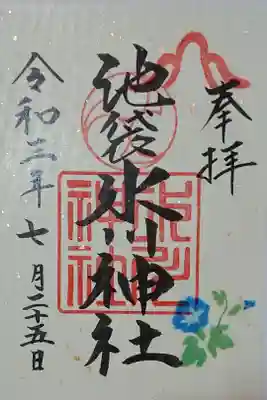 奉拝
池袋氷川神社
令和三年七月二十五日